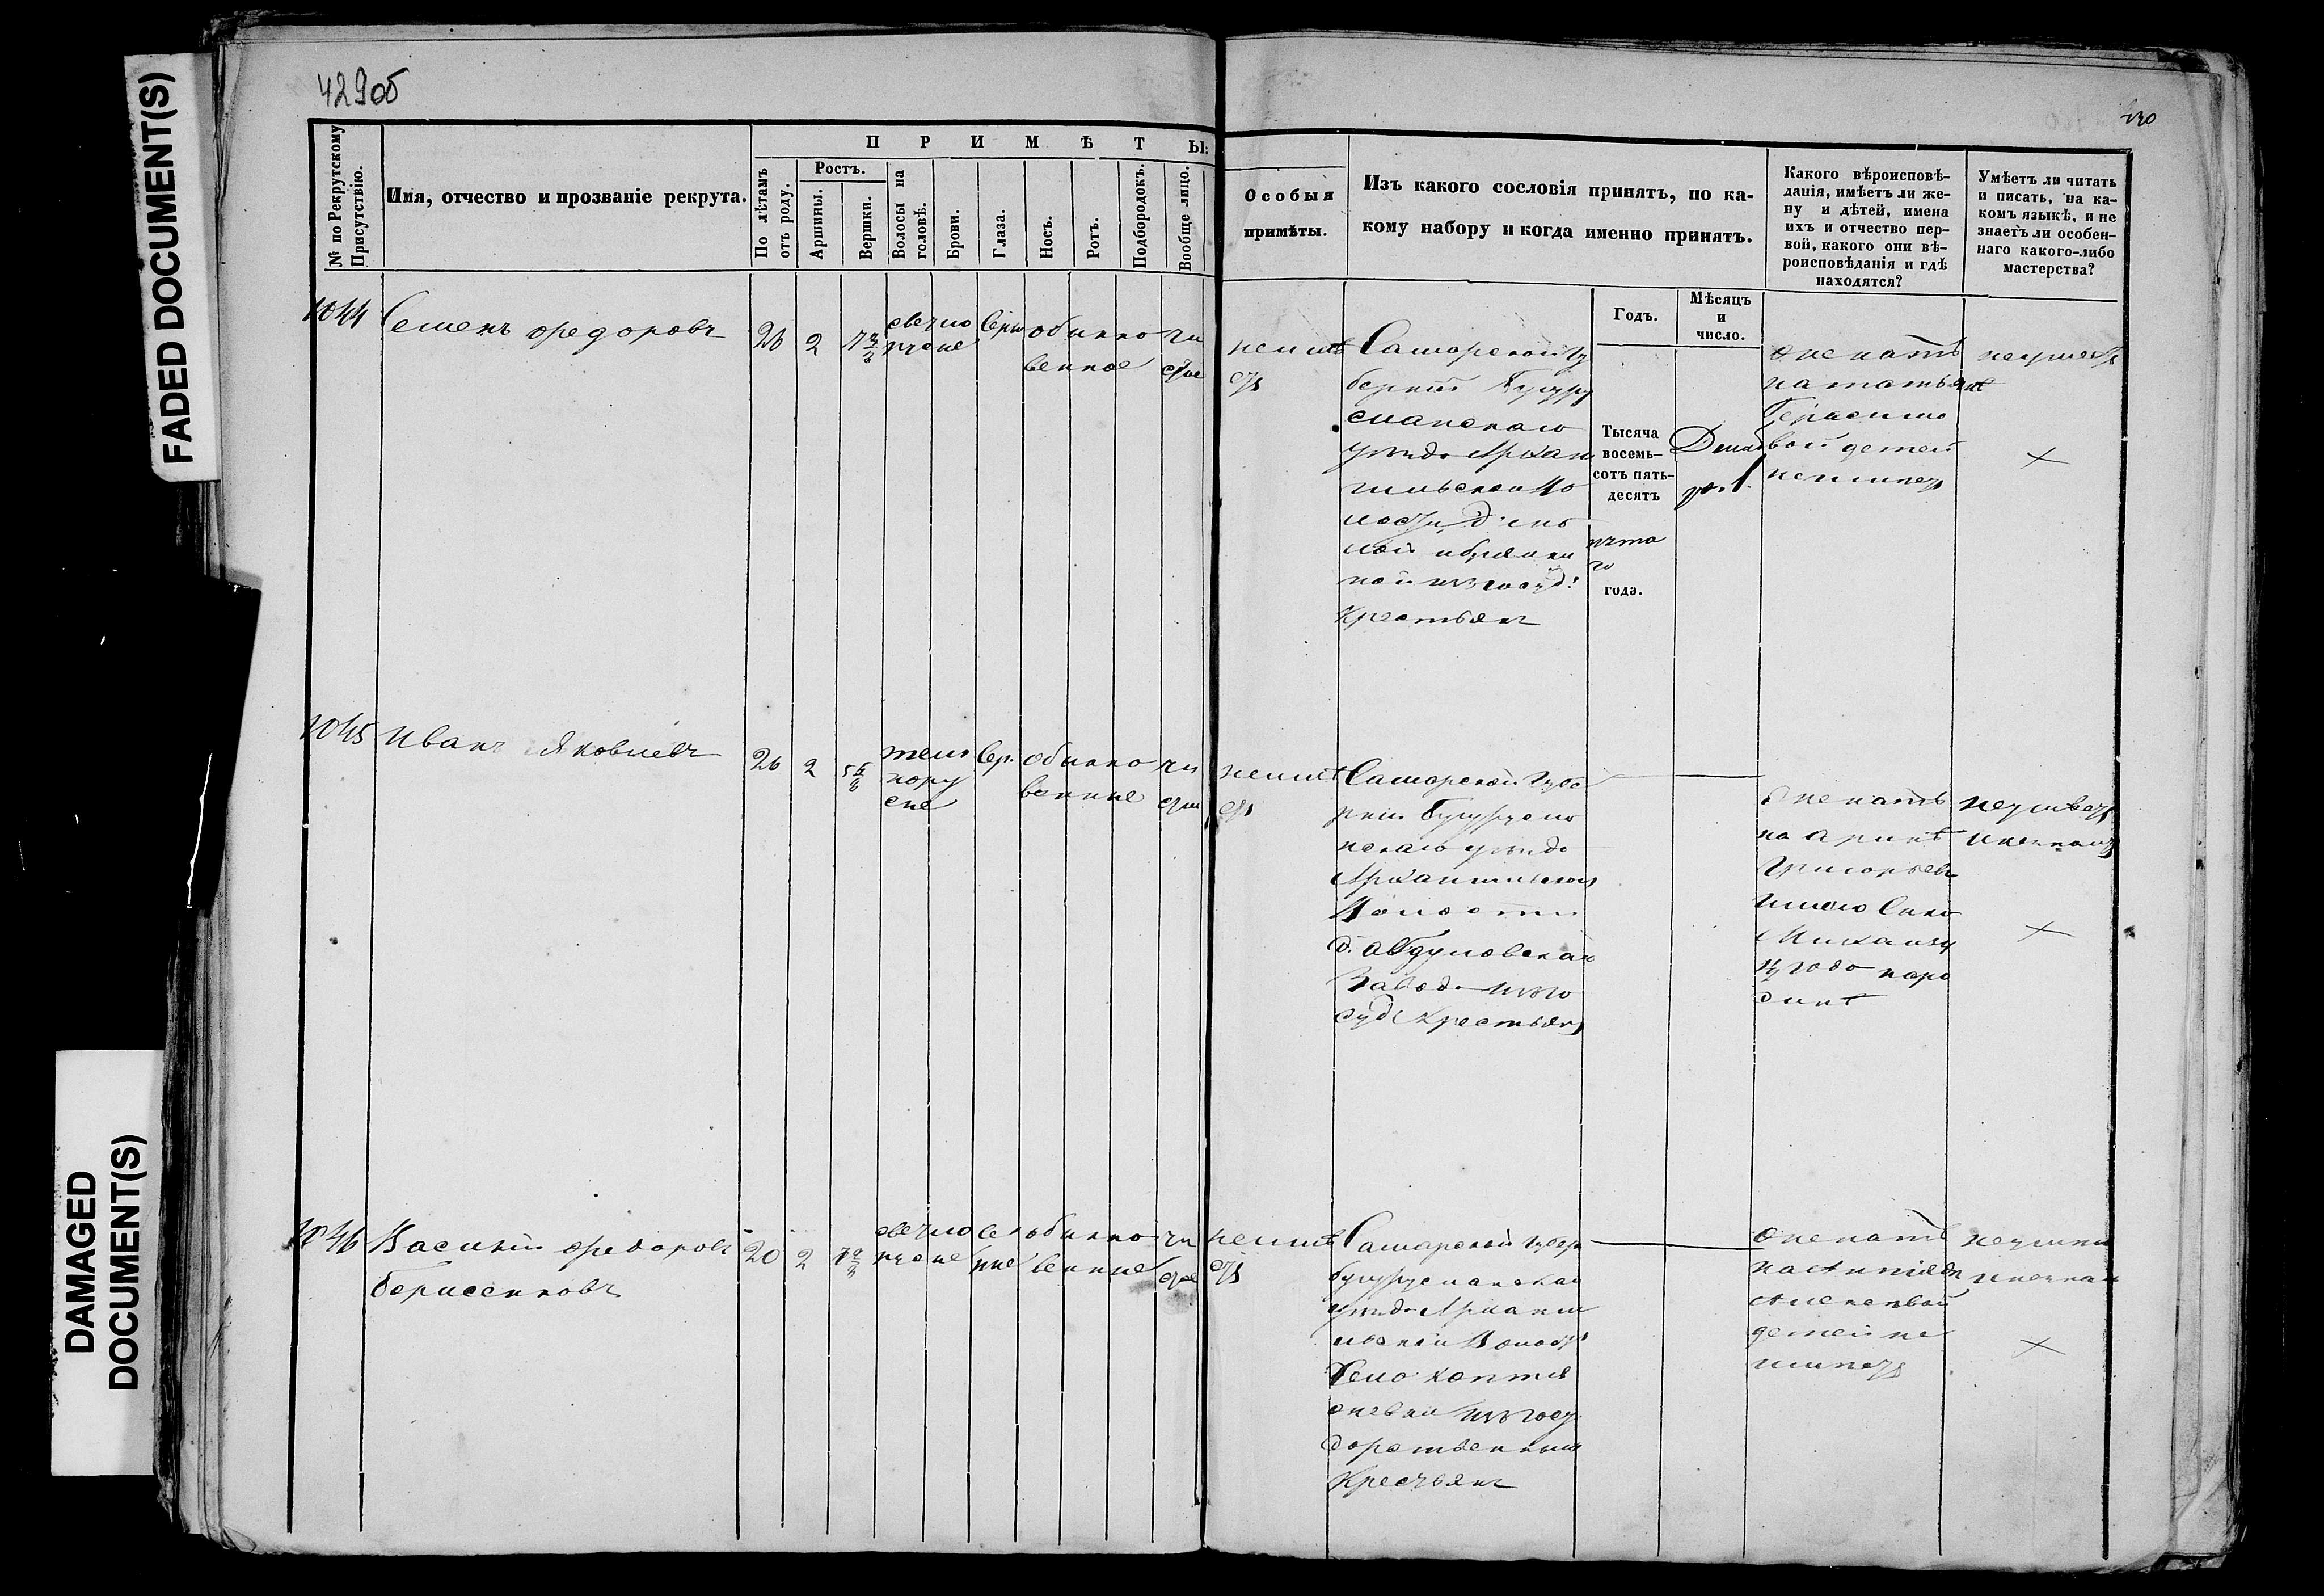 429об
130
FADED DOCUMENT(S)
DAMAGED
DOCUMENT(S)
№ по Рекрутскому
Присутствію.
Имя, отчество и прозваніе рекрута.
П Р И М Ѣ Т Ы:
По лѣтамъ
отъ роду.
Ростъ.
Аршины.
Вершки.
Волосы на
головѣ.
Брови.
Глаза.
Носъ.
Ротъ.
Подбородокъ.
Вообще лицо.
Особыя
примѣты.
Изъ какого сословія принятъ, по ка-
кому набору и когда именно принятъ.
Годъ.
Мѣсяцъ
и
число.
Какого вѣроисповѣ-
данія, имѣетъ ли же-
ну и дѣтей, имена
ихъ и отчество пер-
вой, какого они вѣ-
роисповѣданія и гдѣ
находятся?
Умѣетъ ли читать
и писать, на ка-
комъ языкѣ, и не
знаетъ ли особен-
наго какого-либо
мастерства?
1044
Семенъ Федоровъ
26
2
светло
обыкно
венное
чи
стое
неимѣ
етъ
Самарской Гу
берніи Бугуру
сланскаго
уѣзда Архан
гильской Во
лости
изъ госуд:
Крестьянъ
Тысяча
восемь-
сотъ пять-
десятъ
пято
го
года.
Дека
бр. 1
женатъ
на татьяне
Герасимо
вой детей
неимеетъ
неумеетъ
1045
Иванъ Яковлевъ
26
2
темно
русые
Сер.
обыкно
венные
чи
стое
неимѣ
етъ
Самарской Губе
рніи Бугурусла
нскаго уѣзда
Архангильской
Волости
д. Абдуловскай
Завод изъ го
суд Крестьянъ
женатъ
на аринѣ
Григорьев
имею Сына
Михаилу
½ года на ро
дине
неумѣетъ
1046
Василій Федоровъ
Борисенковъ
20
2
светло
се
рые
обыкно
венные
чи
стое
неимѣ
етъ
Самарской Губер
бугурусланскай
уѣзда Арханги
льской Волост
Село
изъ госу
дарственныхъ
Крестьянъ
женатъ
детей не
имѣетъ